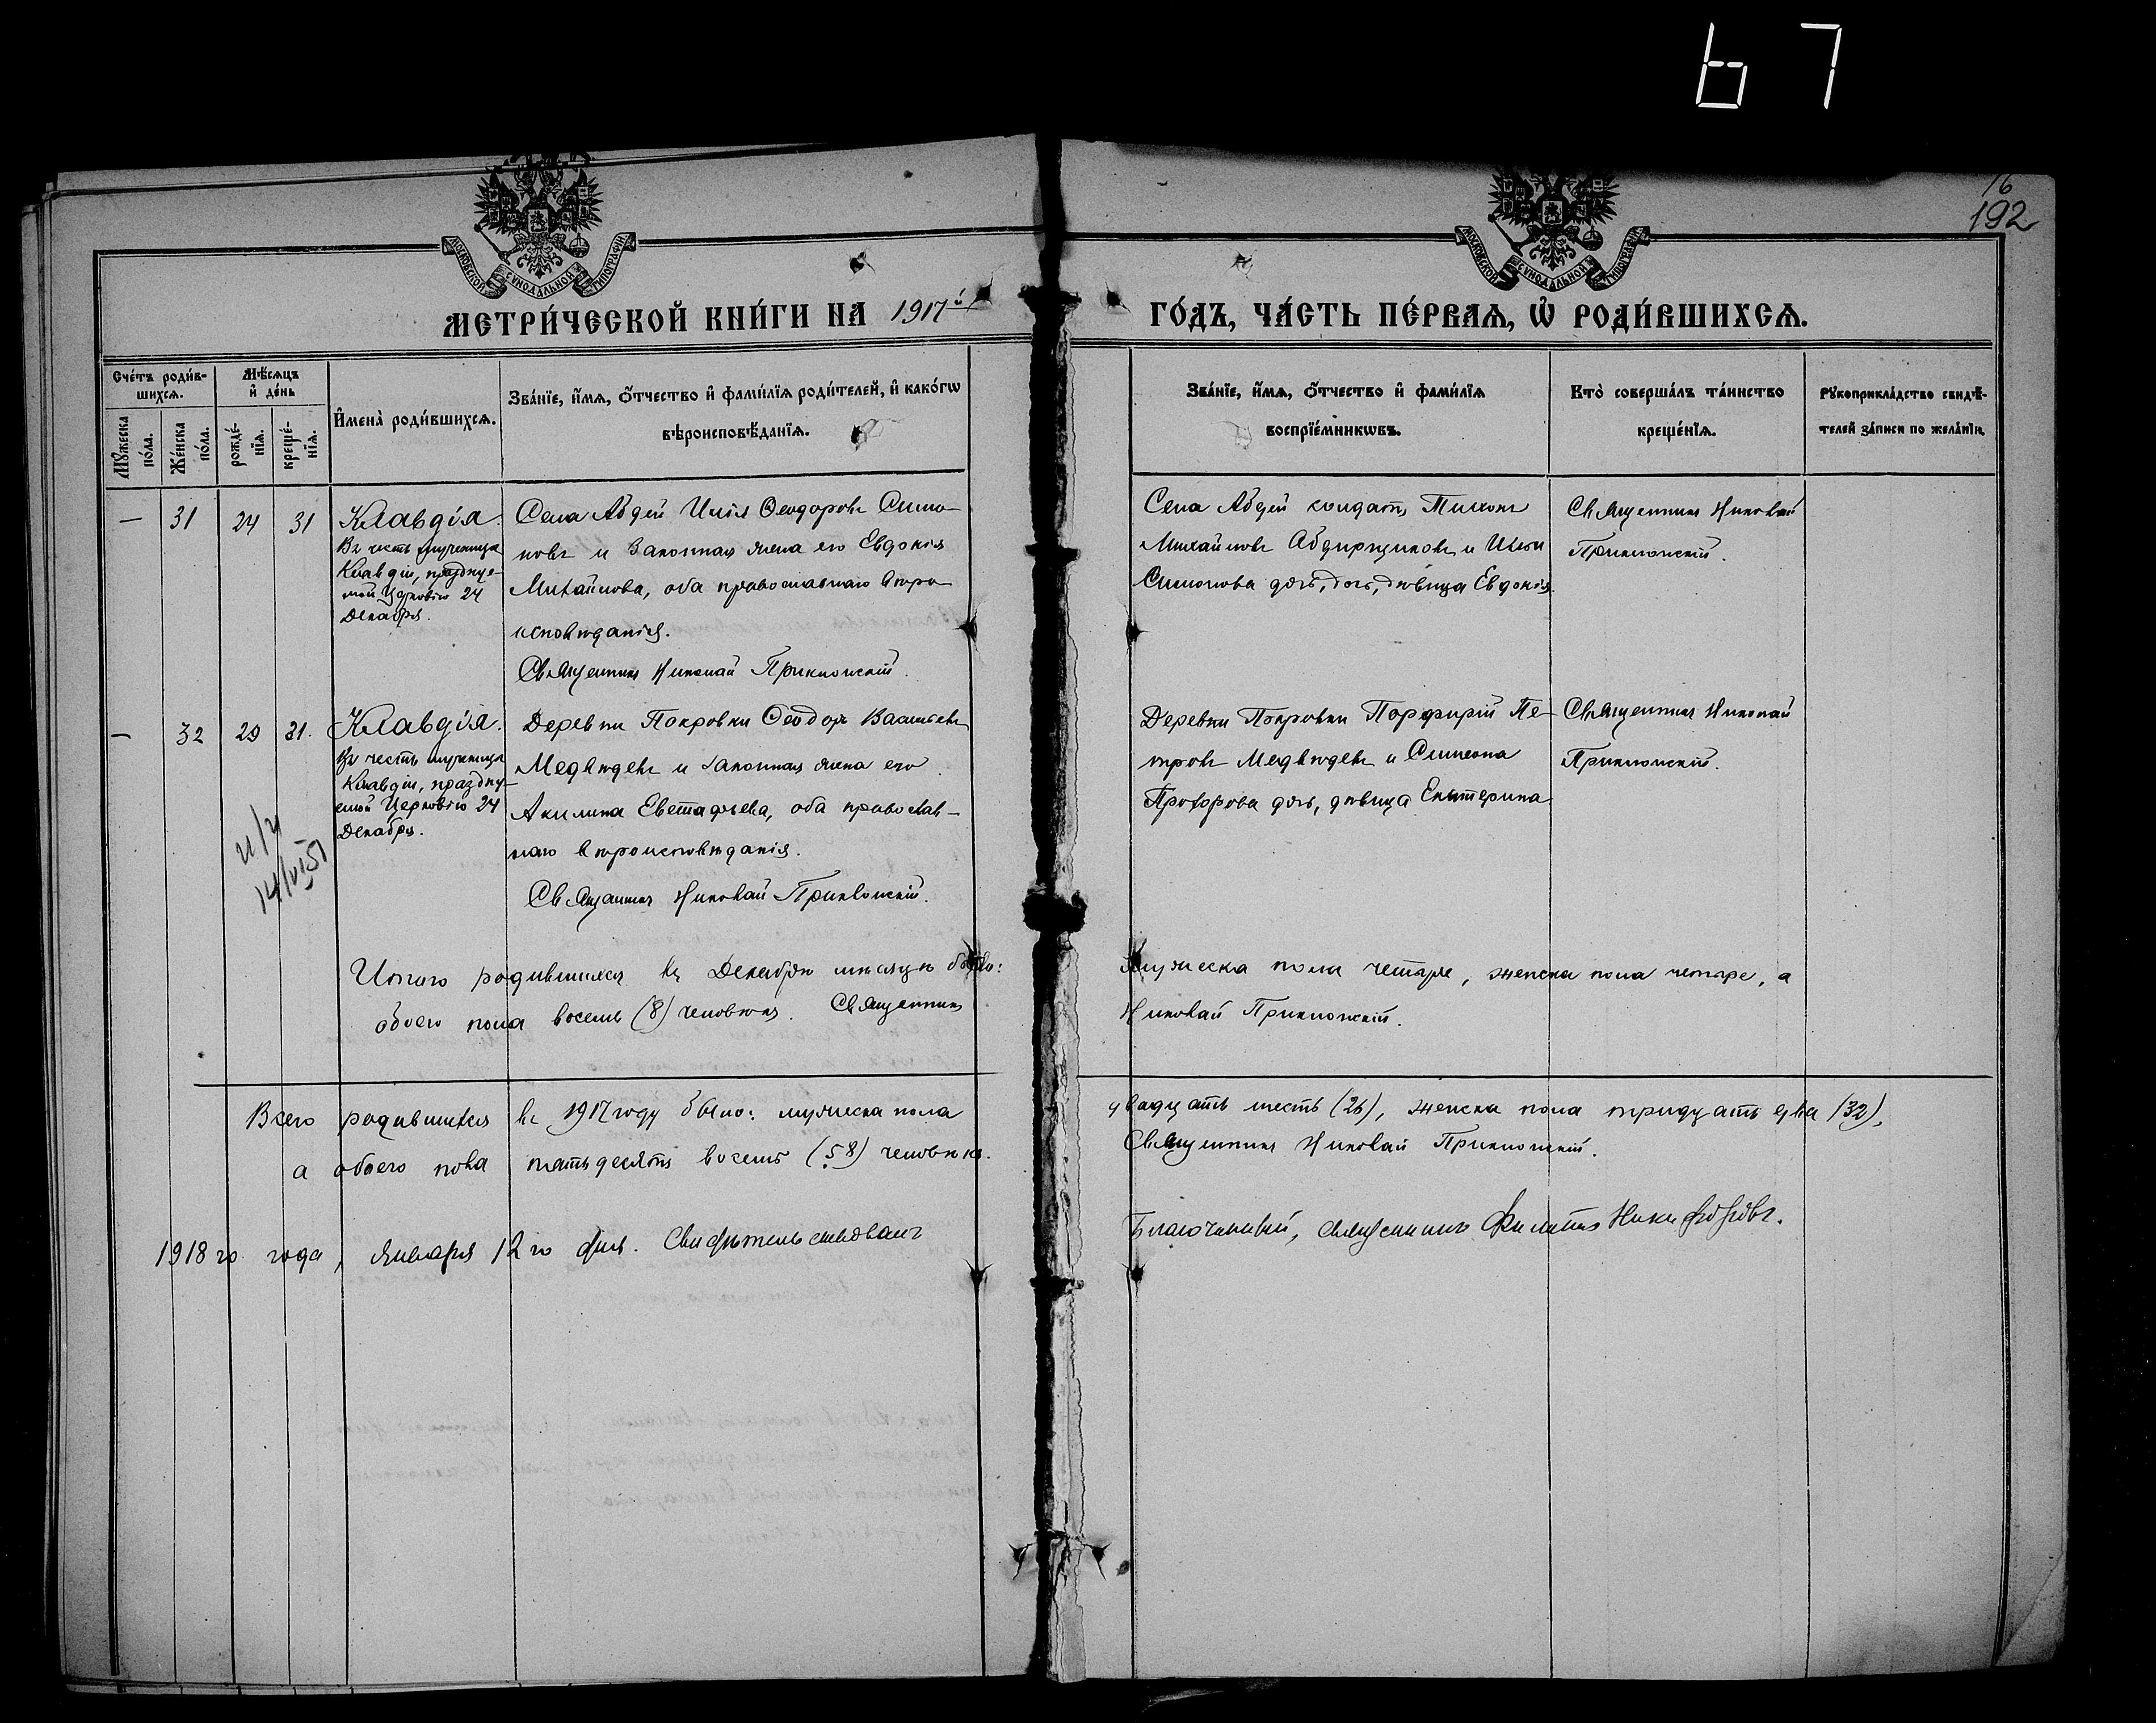 67
16
192
МОСКОВСКОЙ СУНОДАЛЬНОЙ ТИПОГРАФІИ
МОСКОВСКОЙ СУНОДАЛЬНОЙ ТИПОГРАФІИ
МЕТРИ́ЧЕСКОЙ КНИ́ГИ НА 1917й
ГО́ДЪ, ЧА́СТЬ ПЕ́РВАѦ, Ѡ҆ РОДИ́ВШИХСѦ.
Сче́тъ роди́в-
шихсѧ.
Мꙋ́жеска по́ла.
Же́нска по́ла.
Мѣ́сѧцъ
и҆ де́нь
рожде́-
нїѧ.
креще́-
нїѧ.
И҆мена̀ роди́вшихсѧ.
Зва́нїе, и҆́мѧ, ѻ҆́тчество и҆ фамі́лїѧ роди́телей, и҆ како́гѡ
вѣроисповѣ́данїѧ.
Зва́нїе, и҆́мѧ, ѻ҆́тчество и҆ фамі́лїѧ
воспрїе́мникѡвъ.
Кто̀ соверша́лъ та́инство
креще́нїѧ.
Рꙋкоприкла́дство свидѣ́-
телей за́писи по жела́нїю.
— 31 24 31 Клавдія.
Въ честь мученицы
Клавдіи, празднуе-
мой Церковію 24
Декабря.
Села Абдей Илія Ѳеодоровъ Симо-
новъ и законная жена его Евдокія
Михайлова, оба православнаго вѣро-
исповѣданія.
Священникъ Николай Приклонскій.
Села Абдей солдатъ Тихонъ
Михайловъ и Иліи
Симонова дочь, дѣвица Евдокія.
Священникъ Николай
Приклонскій.
— 32 29 31. Клавдія.
Въ честь мученицы
Клавдіи, праздну-
емой Церковію 24
Декабря.
Деревни Покровки Ѳеодоръ Васильевъ
Медвѣдевъ и законная жена его
Акилина Евстафьева, оба православ-
наго вѣроисповѣданія.
Священникъ Николай Приклонскій.
Деревни Покровки Порфирій Пе-
тровъ Медвѣдевъ и Симеона
Прохорова дочь, дѣвица Екатерина
Священникъ Николай
Приклонскій.
14/VI 51
Итого родившихся въ Декабрѣ мѣсяцѣ было: мужеска пола четыре, женска пола четыре, а
обоего пола восемь (8) человѣкъ. Священникъ Николай Приклонскій.
Всего родившихся въ 1917 году было: мужеска пола двадцать шесть (26), женска пола тридцать два (32),
а обоего пола пятьдесятъ восемь (58) человѣкъ. Священникъ Николай Приклонскій.
1918 го года, Января 12 го дня. Свидѣтельствовалъ Благочинный, священникъ Филиппъ Никифоровъ.